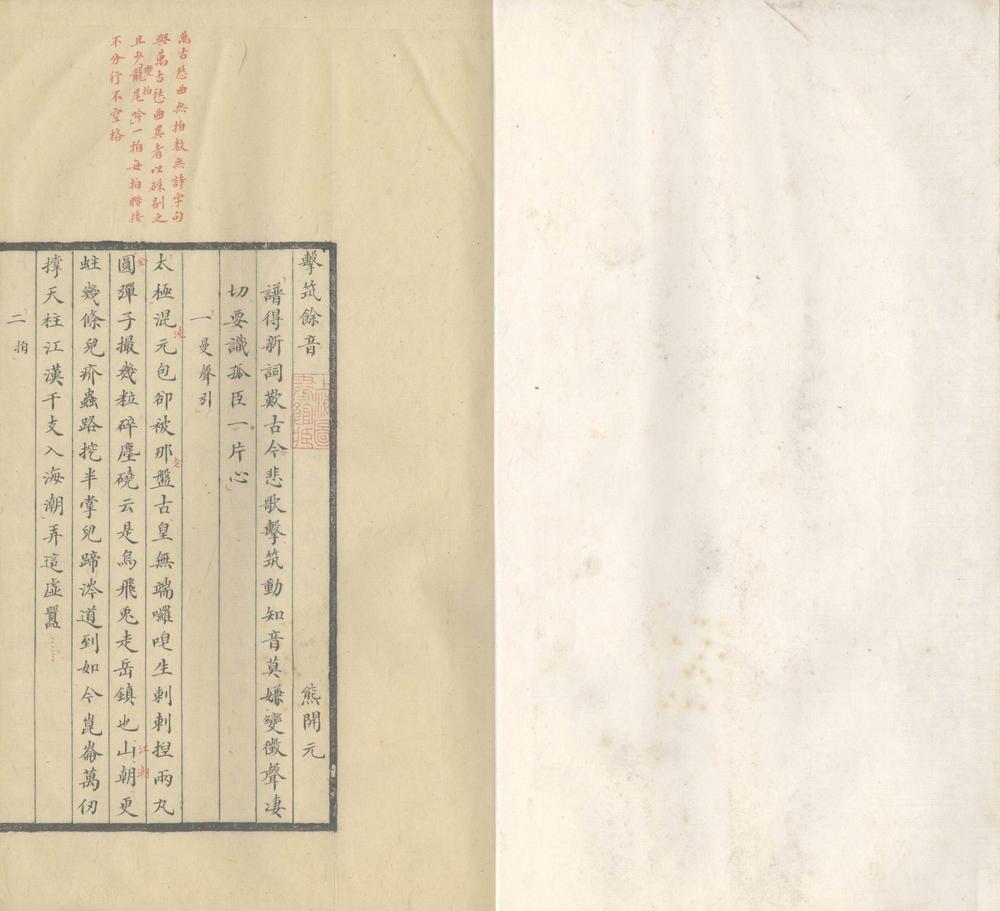 萬古愁曲無拍數無詩字句
與萬古愁曲異者以硃別之
且少龍尾吟一拍每拍聯接
變拍
不分行不空格
擊筑餘音 熊開元
上海圖書館藏
譜得新詞歎古今悲歌擊筑動知音莫嫌變徵聲凄
切要識孤臣一片心
一曼聲引
純
老
太極混元包卻被那盤古皇無端囉唣生剌剌捏兩丸
江潮
圓彈子撮幾粒碎塵磽云是烏飛兎走岳鎮也山朝更
蛀幾條兒疥蟲路挖半掌兒蹄涔道到如今崑崙萬仞
撐天柱江漢千支入海潮弄這虛囂
二拍